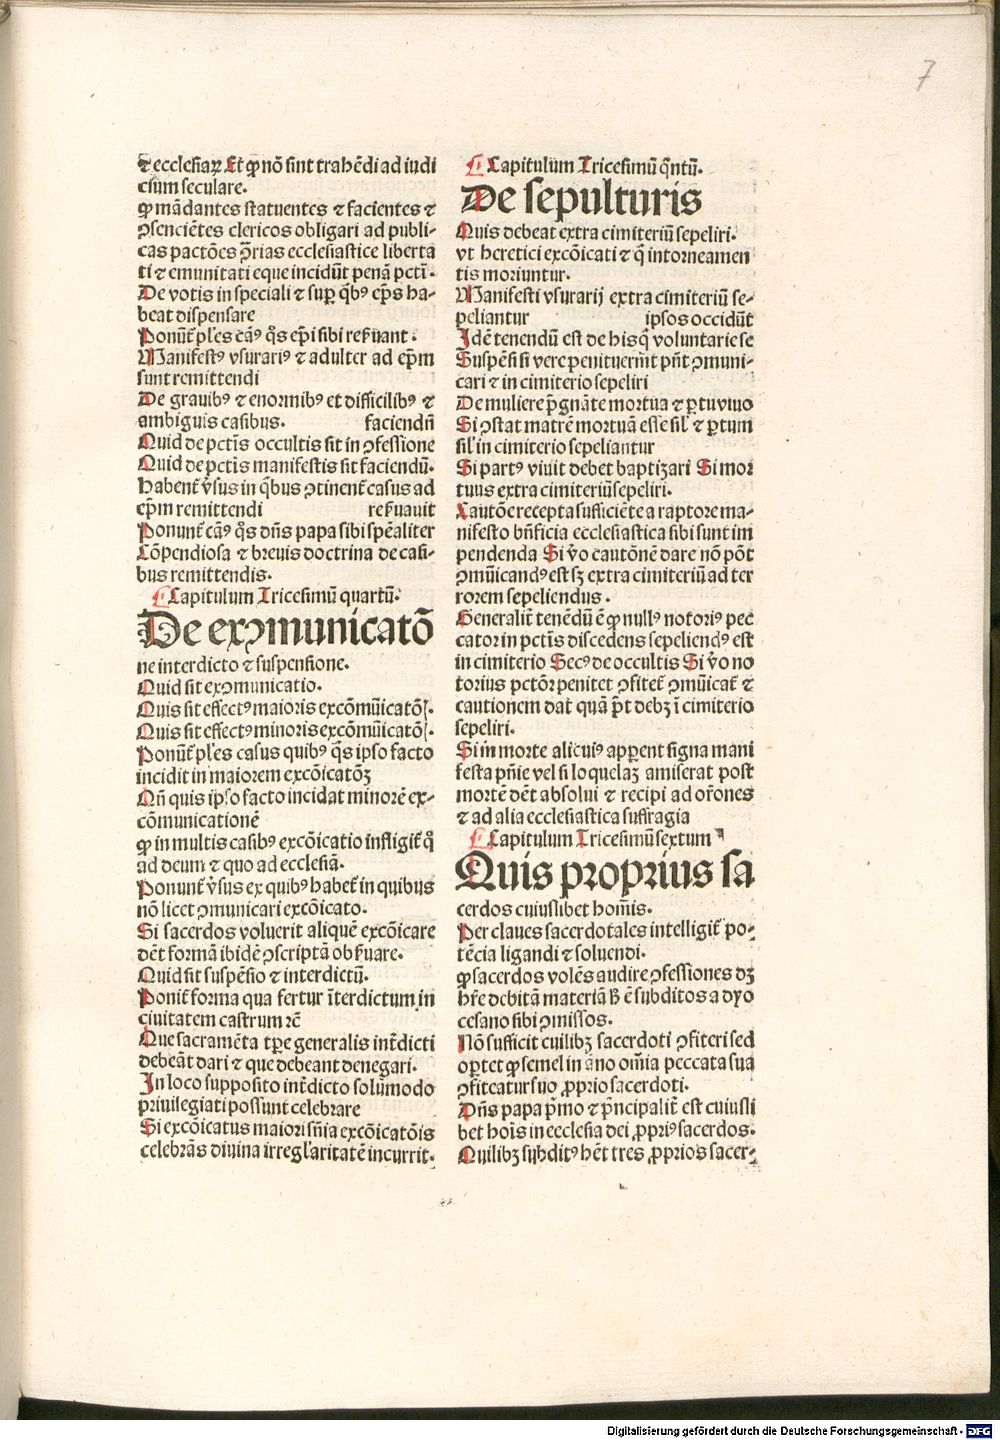 7
⁊ ecclesiaꝝ Et ꝙ nō sint trahēdi ad iudi
cium seculare.
ꝙ mādantes statuentes ⁊ facientes ⁊
ꝯsenciētes clericos obligari ad publi-
cas pactōes ꝯ̄rias ecclesiastice liberta
ti ⁊ emunitati eque incidūt penā pctī.
De votis in speciali ⁊ suꝑ qb̄ꝰ ep̄s ha-
beat dispensare
Ponūt̄ pl̄es cāꝰ qs̄ ep̄i sibi reſ̄uant.
Manifestꝰ vsurariꝰ ⁊ adulter ad ep̄m
sunt remittendi
De grauibꝰ ⁊ enormibꝰ et difficilibꝰ ⁊
ambiguis casibus. faciendū
Quid de pctīs occultis sit in ꝯfessione
Quid de pctīs manifestis sit faciendū.
Habent̄ v̄sus in qb̄us ꝯtinent̄ casus ad
ep̄m remittendi reſ̄uauit
Ponunt̄ cāꝰ qs̄ dn̄s papa sibi spēaliter
Cōpendiosa ⁊ breuis doctrina de casi-
bus remittendis.
Capitulum Tricesimū quartū.
De exꝯmunicatō
ne interdicto ⁊ suspensione.
Quid sit exꝯmunicatio.
Quis sit effectꝰ maioris excōmūicatōĩs.
Quis sit effectꝰ minoris excōmūicatōĩs.
Ponūt̄ pl̄es casus quibꝰ qs̄ ipso facto
incidit in maiorem excōicatōꝫ
Qn̄ quis ipso facto incidat minorē ex-
cōmunicationē
ꝙ in multis casibꝰ excōicatio infligit̄ q̊
ad deum ⁊ quo ad ecclesiā.
Ponunt̄ v̄sus ex quibꝰ habet̄ in quibus
nō licet ꝯmunicari excōicato.
Si sacerdos voluerit aliquē excōicare
dēt formā ibidē ꝯscriptā obſ̄uare.
Quid sit suspēsio ⁊ interdictū.
Ponit̄ forma qua fertur īterdictum in
ciuitatem castrum ⁊cē
Que sacramēta tꝑe generalis int̄dicti
debeāt dari ⁊ que debeant denegari.
In loco supposito int̄dicto solūmodo
priuilegiati possunt celebrare
Si excōicatus maiori sn̄ia excōicatōis
celebrās diuina irregl̄aritatē incurrit.
Capitulum Tricesimū qn̄tū.
De sepulturis
Quis debeat extra cimiteriū sepeliri.
vt heretici excōicati ⁊ q̄ in torneamen
tis moriuntur.
Manifesti vsurarij extra cimiteriū se-
peliantur ipsos occidūt
Idē tenendū est de his q̄ voluntarie se
Suspēsi si vere penituerīt pn̄t ꝯmuni-
cari ⁊ in cimiterio sepeliri
De muliere p̄gnāte mortua ⁊ ꝑtu viuo
Si ꝯstat matrē mortuā esse sil̄ ⁊ ꝑtum
sil̄ in cimiterio sepeliantur
Si partꝰ viuit debet baptizari Si mor
tuus extra cimiteriū sepeliri.
Cautōe recepta sufficiēte a raptore ma-
nifesto bn̄ficia ecclesiastica sibi sunt im
pendenda Si v̄o cautōnē dare nō pōt
ꝯmūicandꝰ est sꝫ extra cimiteriū ad ter
rorem sepeliendus.
Generalit̄ tenēdū ē ꝙ nullꝰ notoriꝰ pec
cator in pctīs discedens sepeliendꝰ est
in cimiterio Secꝰ de occultis Si v̄o no
torius pctōr penitet ꝯfitet̄ ꝯmūicat̄ ⁊
cautionem dat quā p̄t debꝫ ī cimiterio
sepeliri.
Si in morte alicuiꝰ apꝑent signa mani
festa pn̄ie vel si loquelaꝫ amiserat post
mortē dēt absolui ⁊ recipi ad or̄ones
⁊ ad alia ecclesiastica suffragia
Capitulum Tricesimū sextum
Quis proprius sa
cerdos cuiuslibet hom̄is.
Per claues sacerdotales intelligit̄ po-
tēcia ligandi ⁊ soluendi.
ꝙ sacerdos volēs audire ꝯfessiones dꝫ
hr̄e debitā materiā ꝭ ē subditos a dyo
cesano sibi ꝯmissos.
Nō sufficit cuilibꝫ sacerdoti ꝯfiteri sed
oꝑtet ꝙ semel in anno om̄ia peccata sua
ꝯfiteatur suo ꝓprio sacerdoti.
Dn̄s papa p̄mo ⁊ p̄ncipalit̄ est cuiusli
bet hoīs in ecclesia dei ꝓpriꝰ sacerdos.
Quilibꝫ subditꝰ hēt tres ꝓprios sacer-
Digitalisierung gefördert durch die Deutsche Forschungsgemeinschaft - DFG